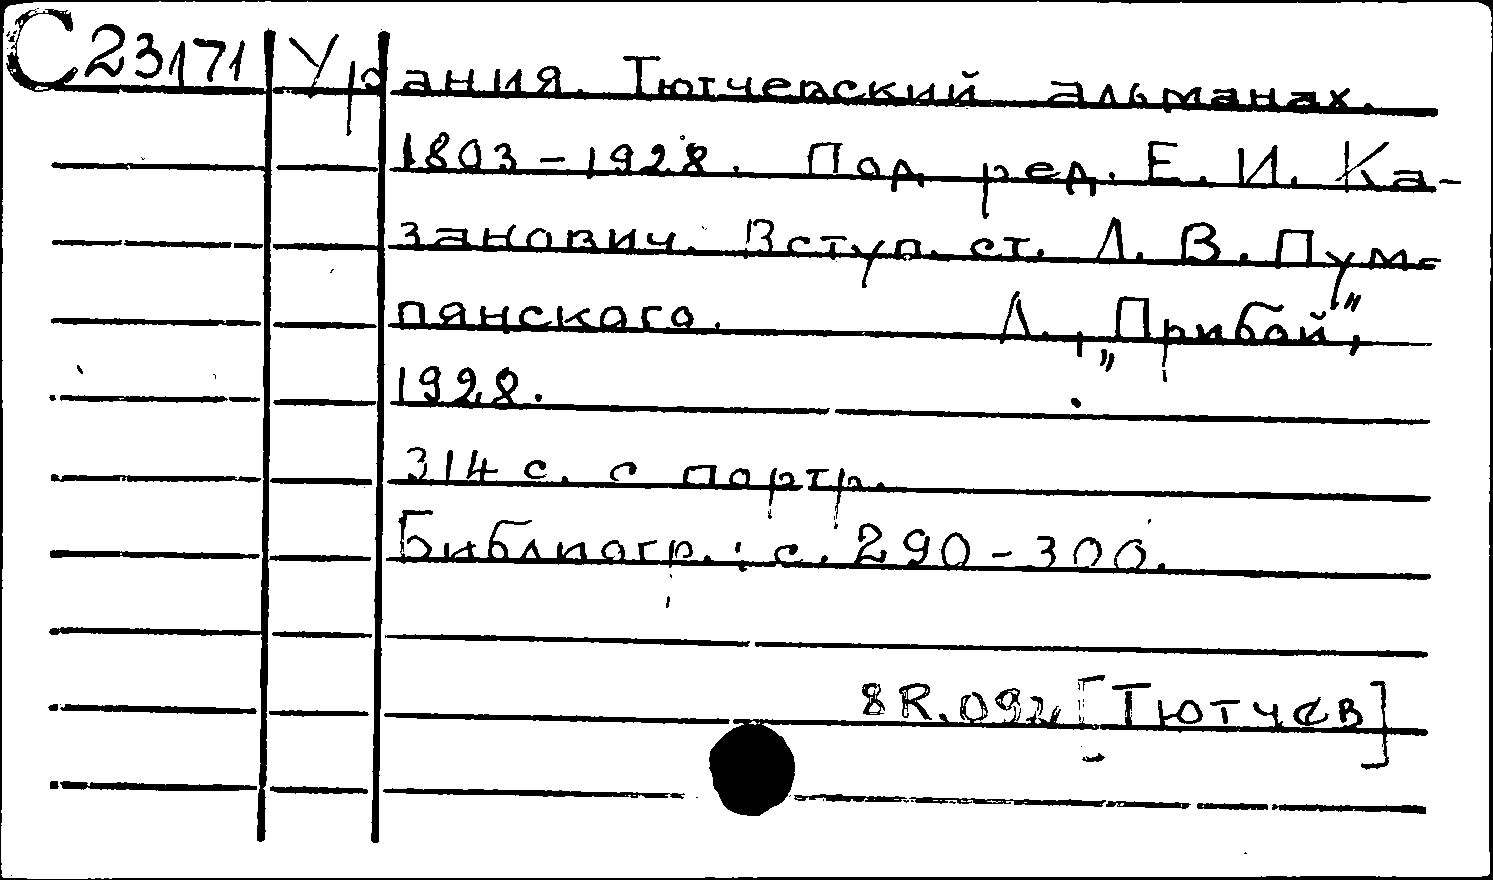 С23171 Урания. Тютчевский альманах.
1803-1928. Под ред. Е. И. Ка-
занович. Вступ. ст. Л. В. Пум-
пянского. Л., „Прибой",
1928.
314 с. с портр.
Библиогр.: с. 290-300.
8R.092 [Тютчев]